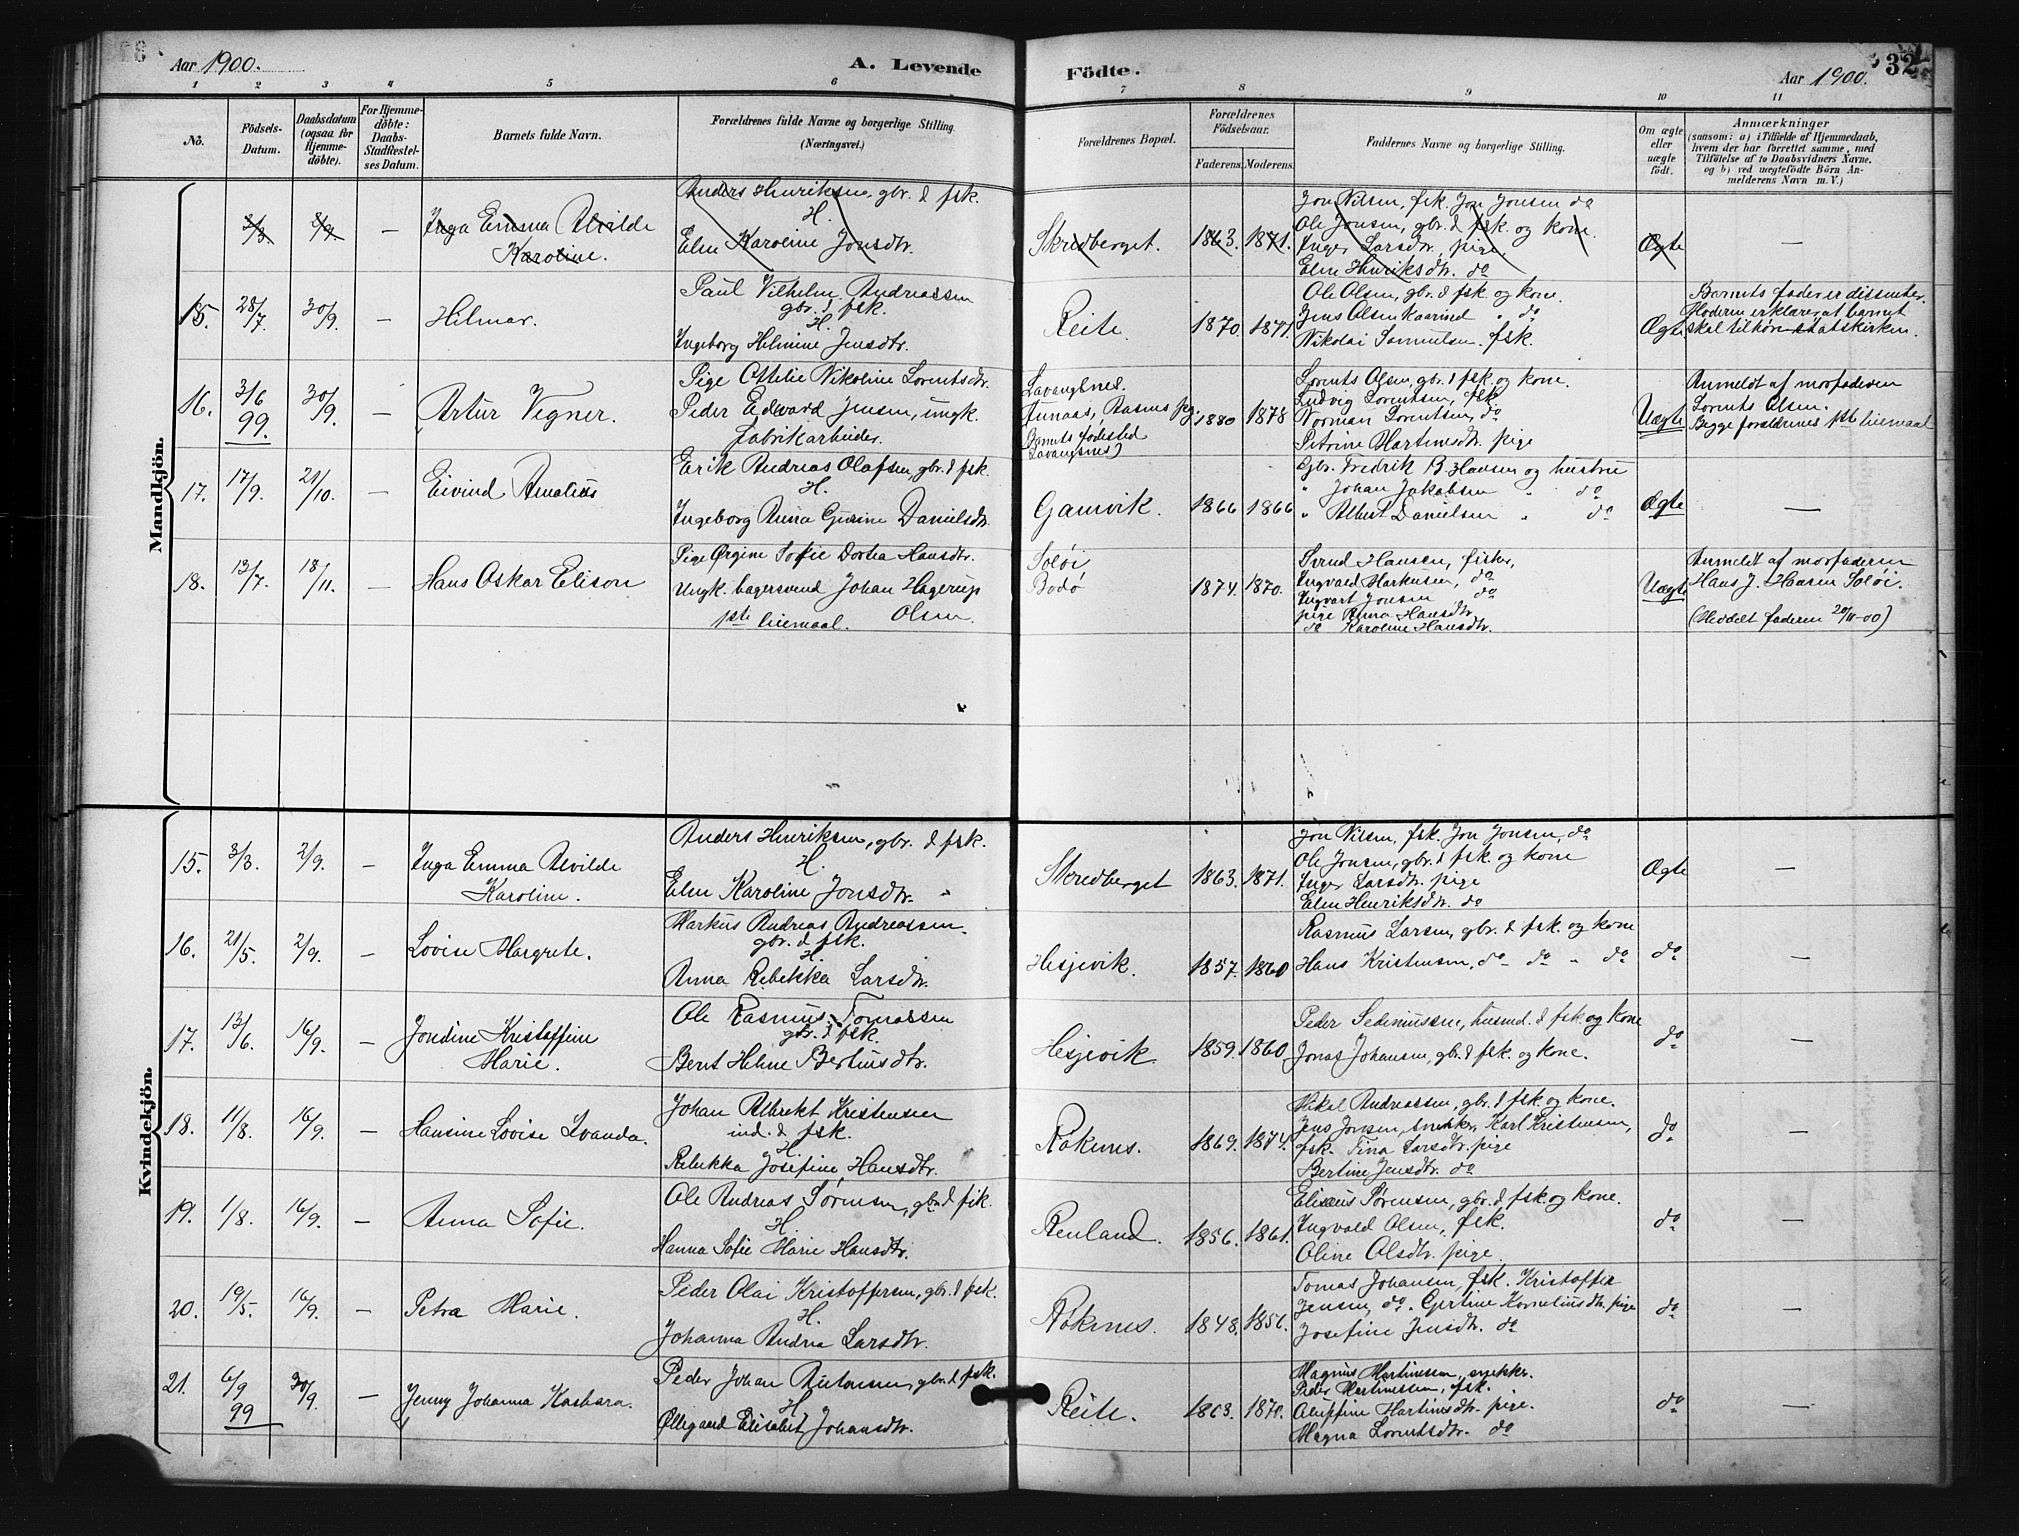 Aar 1900. A. Levende
1 2 3 4 5 6
No.
Födsels-
Datum.
Daabsdatum
(ogsaa for
Hjemme-
döbte).
For Hjemme-
döbte:
Daabs-
Stadfæstel-
ses Datum.
Barnets fulde Navn.
Forældrenes fulde Navne og borgerlige Stilling.
(Næringsvei.)
Mandkjön.
3/3 2/9 — Inga Emma Alvilde
Karoline.
Anders Henriksen, gbr. & fsk.
H.
Elen Karoline Jonsdtr.
15. 28/7 30/9. — Hilmar.
Paul Vilhelm Andreassen
gbr. & fsk.
H.
Ingeborg Helmine Jensdtr.
16. 3/6 99. 30/9 — Artur Vegner.
Pige Ottelie Nikoline Lorentsdtr.
Peder Edvard Jensen, ungk.
fabrikarbeider.
17. 17/9. 21/10. — Eivind Amalius
Erik Andreas Olafsen, gbr. & fsk.
H.
Ingeborg Anna Gurine Danielsdtr.
18. 13/7. 18/11. — Hans Oskar Elison
Pige Ørgine Sofie Dortea Hansdtr.
Ungk. bagersvend Johan Hagerup
1ste leiermaal. Olsen.
Kvindekjön.
15. 3/3. 2/9. — Inga Emma Alvilde
Karoline.
Anders Henriksen, gbr. & fsk.
H.
Elen Karoline Jonsdtr.
16. 21/5. 2/9. — Lovise Margrete.
Markus Andreas Andreassen.
gbr. & fsk.
H.
Anna Rebekka Larsdtr.
17. 13/6. 16/9. — Jondine Kristoffine
Marie.
Ole Rasmus Tomassen
gbr. & fsk.
Berit Helene Bertinsdtr.
18. 11/8. 16/9. — Hansine Lovise Ivanda.
Johan Albrekt Kristensen
ind. & fsk.
H.
Rebekka Josefine Hansdtr.
19. 1/8. 16/9. — Anna Sofie.
Ole Andreas Sørensen, gbr. & fsk.
H.
Hanna Sofie Marie Hansdtr.
20. 19/5. 16/9. — Petra Marie.
Peder Olai Kristoffersen, gbr. & fsk.
H.
Johanna Andrea Larsdtr.
21. 6/9 99 30/9. — Jenny Johanna Kasbara.
Peder Johan Antonsen, gbr. & fsk.
H.
Øllegaard Elisabet Johansdtr.
Födte. Aar 1900. 32
7 8 9 10 11
Forældrenes Bopæl.
Forældrenes
Födselsaar.
Faderens. Moderens.
Faddernes Navne og borgerlige Stilling.
Om ægte
eller
uægte
födt.
Anmærkninger
(saasom: a) i Tilfælde af Hjemmedaab,
hvem der har forrettet samme, med
Tilföielse af to Daabsvidners Navne.
og b) ved uægtefödte Börn An-
melderens Navn m. V.)
Skredberget. 1863. 1871.
Jon Nilsen, fsk. Jon Jonsen do
Ole Jonsen, gbr. & fsk. og kone.
Inger Larsdtr. pige
Elen Henriksdtr. do
Ægte —
Reite. 1870. 1871.
Ole Olsen, gbr. & fsk. og kone.
Jens Olsen Kaarind " do
Nikolai Samuelsen. fsk.
Ægte.
Barnets fader er dissenter.
Moderen erklærer at barnet
skal tilhøre statskirken.
Lavangsnes.
Aunaas, Rasnes pg.
Barnets fødested
Lavangsnes)
1880 1878
Lorents Olsen, gbr. & fsk. og kone.
Ludvig Lorentsen, fsk.
Norman Lorentsen, do
Petrine Martinsdtr. pige
Uægte
Anmeldt af morfaderen
Lorents Olsen.
Begge forældrenes 1ste leiermaal
Gamvik. 1866 1866
Gbr. Fredrik B. Hansen og hustru
" Johan Jakobsen " do
" Albert Danielsen " do
Ægte —
Soløi
Bodø
1874. 1870.
Svend Hansen, fisker,
Ingvald Markussen, do
Ingvart Jonsen do
pige Anna Hansdtr.
do Karoline Hansdtr.
Uægte
Anmeldt af morfaderen
Hans J. Hansen Soløi.
(Meddelt faderen 20/11-00)
Skredberget 1863. 1871.
Jon Nilsen, fsk. Jon Jonsen, do
Ole Jonsen, gbr. & fsk. og kone
Inger Larsdtr. pige
Elen Henriksdtr. do
Ægte —
Hesjevik. 1857. 1860
Rasmus Larsen, gbr. & fsk. og kone
Hans Kristensen, do do " do
do —
Hesjevik. 1859. 1860
Peder Sedeniussen, husmd. & fsk. og kone
Jonas Johansen, gbr. & fsk. og kone.
do —
Røkenes. 1869. 1874.
Mikal Andreassen, gbr. & fsk. og kone.
Jens Jonsen, snekker, Karl Kristensen,
fsk. Tina Larsdtr. pige
Bertine Jensdtr. do
do —
Renland. 1856. 1861.
Elisæus Sørensen, gbr. & fsk. og kone.
Ingvald Olsen, fsk.
Oline Olsdtr. pige.
do —
Røkenes. 1848. 1856.
Tomas Johansen, fsk. Kristoffer
Jensen, do. Gjertine Korneliusdtr. pige
Josefine Jensdtr. do
do —
Reite. 1863. 1870.
Magnus Martinussen, snekker.
Peder Martinussen, fsk.
Oluffine Martinsdtr. pige.
Magna Lorentsdtr. do
do —